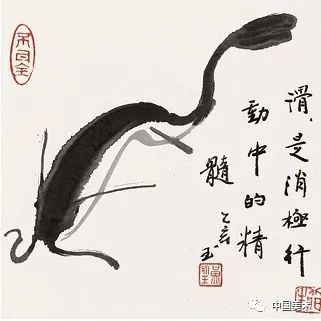 滑，是消極行
動中的精
髓
乙亥玉
中国美术